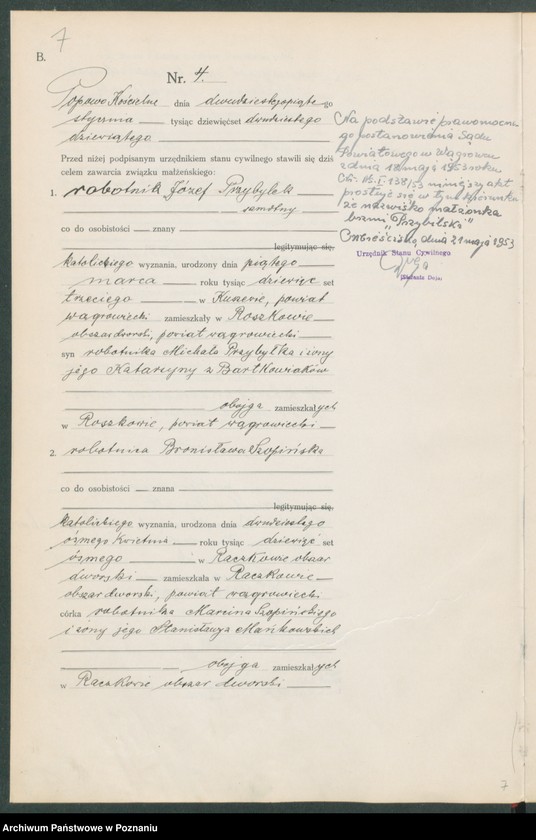 7
B.
Nr. 4.
Popowo Kościelne dnia dwudziestegopiątego
stycznia tysiąc dziewięćset dwudziestego
dziewiątego
Przed niżej podpisanym urzędnikiem stanu cywilnego stawili się dziś
celem zawarcia związku małżeńskiego:
1. robotnik Józef Przybyłek
samotny
co do osobistości znany
legitymując się,
katolickiego wyznania, urodzony dnia piątego
marca roku tysiąc dziewięć set
trzeciego w powiat
wągrowiecki zamieszkały w Roszkowie
obszar dworski, powiat wągrowiecki
syn robotnika Michała Przybyłka i żony
jego Katarzyny z Bartkowiaków
obojga zamieszkałych
w Roszkowie, powiat wągrowiecki
2. robotnica Bronisława Szopińska
co do osobistości znana
legitymując się,
katolickiego wyznania, urodzona dnia dwudziestego
ósmego kwietnia roku tysiąc dziewięć set
ósmego w Raczkowie obszar
dworski zamieszkała w Raczkowie
obszar dworski, powiat wągrowiecki
córka robotnika Marcina Szopińskiego
i żony jego Stanisławy z Mańkowskich
obojga zamieszkałych
w Raczkowie obszar dworski
Na podstawie prawomocne
go postanowienia Sądu
Powiatowego w Wągrowcu
z dnia 12 maja 1953 roku
138/53 niniejszy akt
prostuje się w tym kierunku
że nazwisko małżonka
brzmi "Przybilski"
dnia 21 maja 1953
Urzędnik Stanu Cywilnego
7
Archiwum Państwowe w Poznaniu